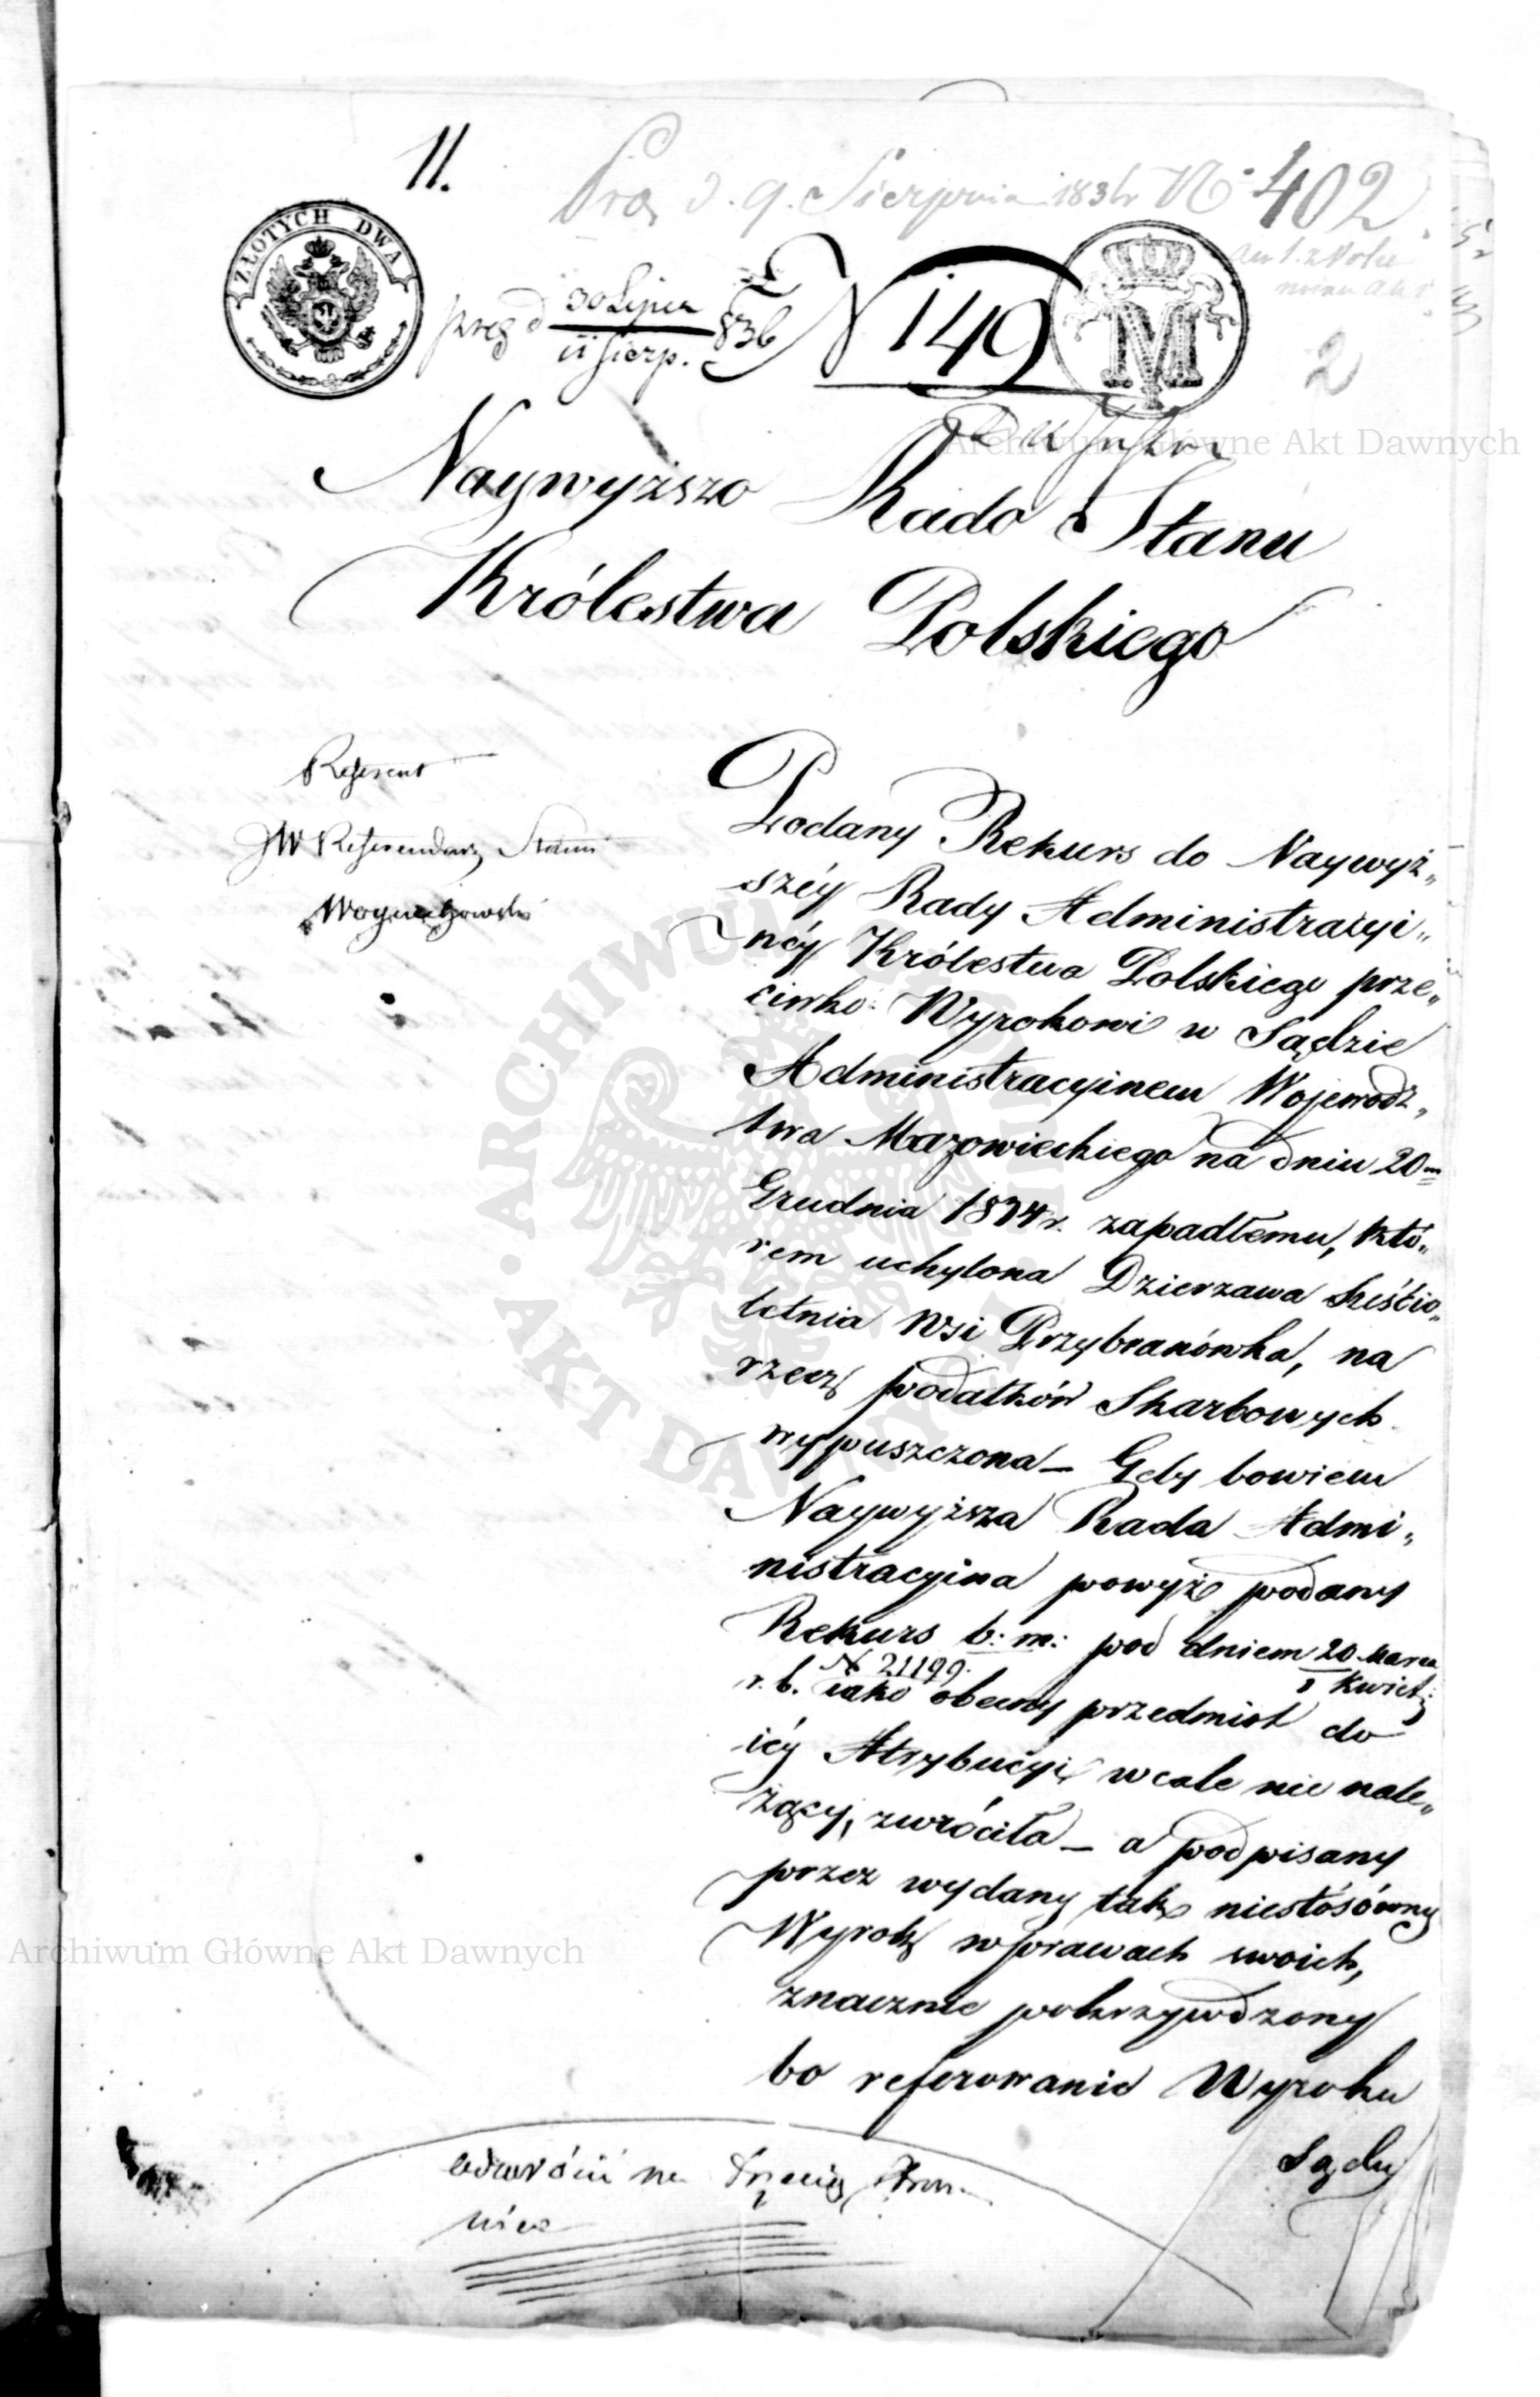 11.
d. 9. Sierpnia 1836 r N° 402
ZŁOTYCH DWA
30 Lipca
11 Sierp. 836
N 149
M
2
Archiwum Główne Akt Dawnych
Naywyższo Rado Stanu
Królestwa Polskiego
Referent
JW Referendarz Stanu
Woyciechowski
Podany Rekurs do Naywyż„
széy Rady Administracyi„
néy Królestwa Polskiego prze„
ciwko Wyrokowi w Sądzie
Administracyinem Wojewódz„
twa Mazowieckiego na dniu 20m
Grudnia 1834 r. zapadłemu, któ„
rem uchylona Dzierzawa Sześcio„
letnia Wsi Przybranówka, na
rzecz podatków Skarbowych
wypuszczona — Gdy bowiem
Naywyższa Rada Admi„
nistracyina powyż podany
Rekurs b: m: pod dniem 20 Marca
1 Kwiet:
N 21199.
r. b. iako obecny przedmiot do
iéy Atrybucyi wcale nie nale„
żący, zwróciła — a podpisany
przez wydany tak niestósówny
Wyrok w prawach swoich,
znacznie pokrzywdzony
bo referowanie Wyroku
Sądu
odwrócić na trzecią stron
nicę
Archiwum Główne Akt Dawnych
ARCHIWUM GŁÓWNE • AKT DAWNYCH •